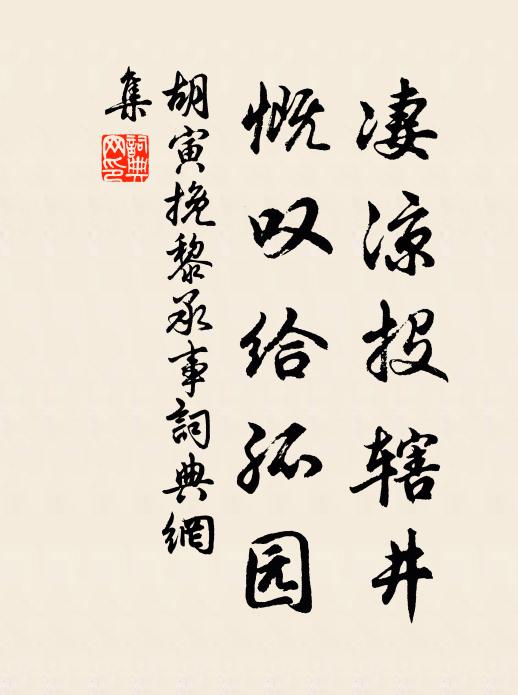 凄凉投辖井
慨叹给孤园
胡寅挽黎承事詞典網
集
詞典
网印